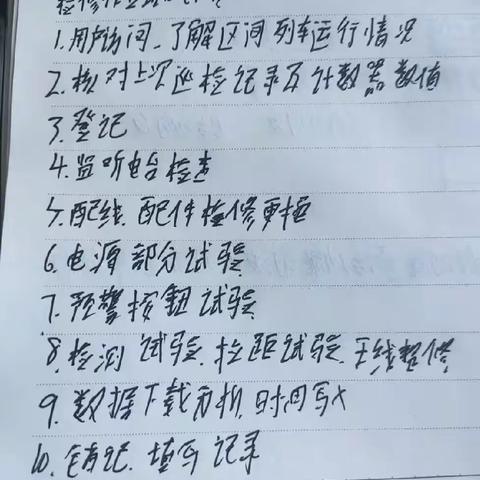 1.用户访问、了解区间列车运行情况
2.核对上次巡检记录及计数器数值
3.登记
4.监听电台检查
5.配线、配件检修更换
6.电源部分试验
7.预警按钮试验
8.检测试验、拉距试验、天线整修
9.数据下载分析,时间写入
10.销记、填写记录